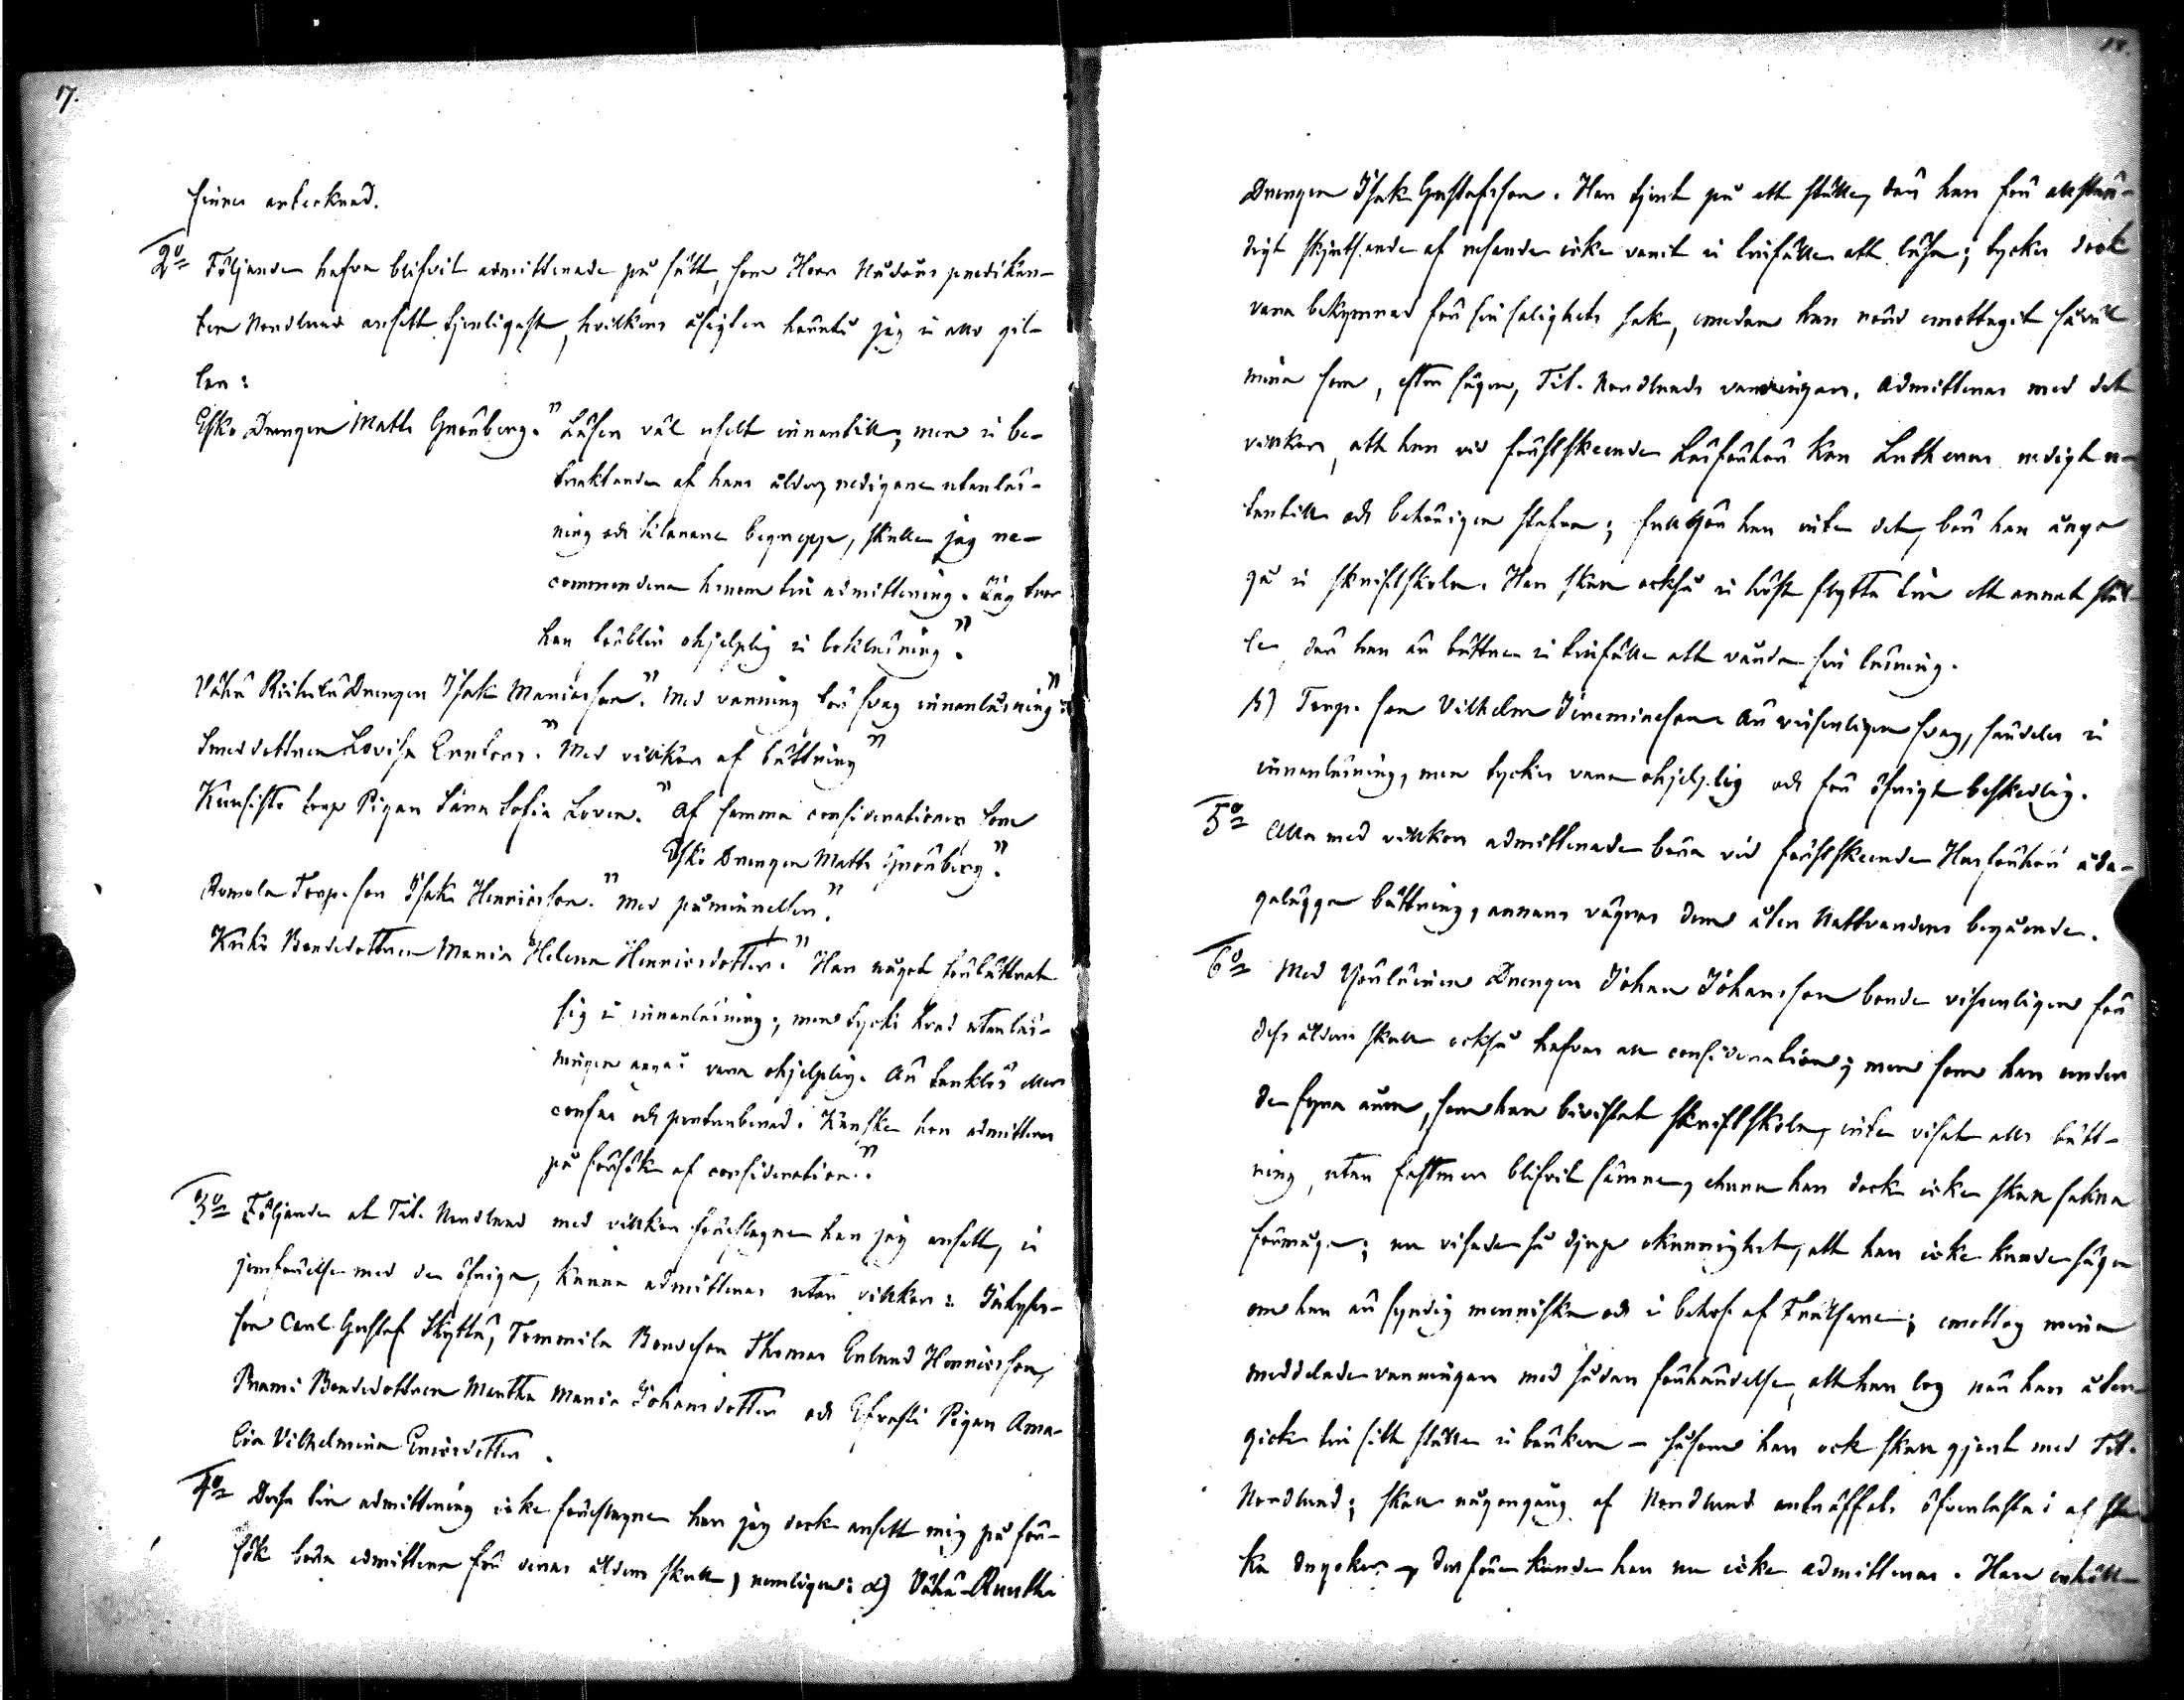 17.
finnes antecknad.
2o Följande hafva blifvit admitterade på sätt, som Herr Nådårspredikan-
ten Nordlund ansett tjenligast, hvilkens åsigter härutj jag i allo gil-
lar:
Esko Drengen Matts Grönberg. " Läser väl uselt innantill; men i be-
traktande af hans ålder, redigare utanläs-
ning och klarare begrepp, skulle jag re-
commendera honom till admittering. Lag tror
han tör bli ohjelplig i bokläsning."
Vähä Riihelä Drengen Isak Mariasson. " Med varning för svag innanläsning":
Smeddottren Lovisa Enfors. " Med villkor af bättring"
Kunsisto torp Pigan Lena Sofia Loven. " Af samma considerationer som
Esko Drengen Matts Grönberg."
Romola Torp. son Isak Henricsson. " Med påminnelser."
Kriko Bondedottren Maria Helena Henricsdotter. " Har något förbättrat
sig i innanläsning; men tycks hvad utanläs-
ningen angår vara ohjelplig. Är tanklös eller
confus och pretenderad. Kanske hon admitteras
på försök af consideration.".
3o Följande af Tit. Nordlund med villkor föreslagne har jag ansett, i
jemförelse med de öfriga, kunna admitteras utan villkor: Inhyses-
son Carl Gustaf Skyttä, Tommila Bondeson Thomas Erlund Henricsson,
Prami Bondedottren Martha Maria Johansdotter och Efrasti Pigan Ama-
lia Vilhelmina Ericsdotter.
4o Dessa till admittering icke föreslagne har jag dock ansett mig på för-
sök böra admittera för deras ålders skull, nemligen: a) Vähä-Runthi
18.
Drengen Isak Gustafsson. Han tjent på ett ställe, der han för allstän-
digt skjutsande af resande icke varit i tillfälle att läsa; tycks dock
vara bekymrad för sin salighets sak, emedan han rörd emottagit såväl
mina som, efter sägen, Tit. Nordlunds varningar. Admitteras med det
villkor, att han vid förstskeende Läsförhör kan Lutheri redigt u-
tantill och behörigen stafva; fullgör han inte det, bör han ånyo
gå i skriftskola. Han skall också i höst flytta till ett annat stäl-
le, der han är bättre i tillfälle att vårda sin läsning.
b) Torp. son Vilhelm Jeremiasson är visserligen svag, särdeles i
innanläsning, men tyckes vara ohjelplig och för öfrigt beskedlig.
5o Alla med villkor admitterade böra vid förstskeende Husförhör åda-
galägga bättring, annars vägras dem åter Nattvardens begående.
6o Med Yöuläinen Drengen Johan Johansson borde visserligen för
dess ålders skull också hafvas all consideration; men som han under
de fyra åren, som han bivistat skriftskola, inte visat alls bätt-
ring, utan fastmer blifvit sämre, ehuru han dock icke skall sakna
förmåga; nu visade så djup okunnighet, att han icke kunde säga
om han är syndig menniska och i behof af Frälsare; emottog mina
meddelade varningar med sådan förhärdelse, att han log när han åter-
gick till sitt ställe i bänken – såsom han ock skall gjort med Tit.
Nordlund; skall någongång af Nordlund anträffats öfverlastad af star-
ka drycker – derföre kunde han nu icke admitteras. Han erhöll